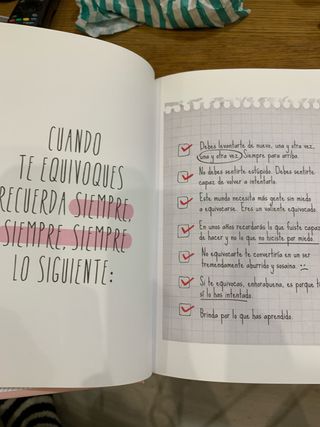 CUANDO
TE EQUIVOQUES
RECUERDA SIEMPRE
SIEMPRE SIEMPRE
LO SIGUIENTE:
Debes levantarte de nuevo, una y otra vez,
una y otra vez. Siempre para arriba.
No debes sentirte estúpido. Debes sentirte
capaz de volver a intentarlo.
Este mundo necesita más gente sin miedo
a equivocarse. Eres un valiente equivocado.
En unos años recordarás lo que fuiste capaz
de hacer y no lo que no hiciste por miedo.
No equivocarte te convertiría en un ser
tremendamente aburrido y sosaina. :(
Si te equivocas, enhorabuena, es porque
sí lo has intentado.
Brinda por lo que has aprendido.